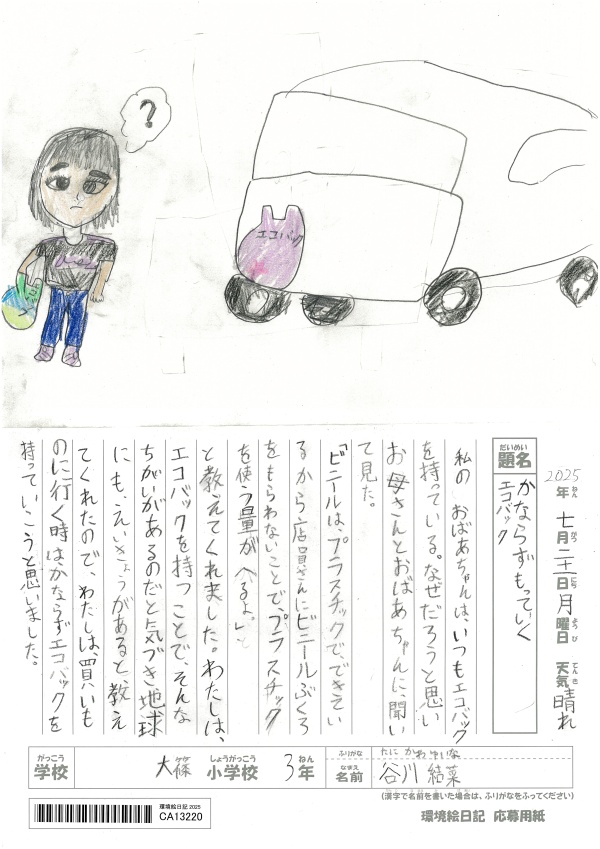 ?
エコバック
2025年 七月二十一日 月曜日 天気 晴れ
ねん がつ にち ようび てんき
だいめい
題名
かならずもっていく
エコバック
私のおばあちゃんは、いつもエコバック
を持っている。なぜだろうと思い
お母さんとおばあちゃんに、聞い
て見た。
「ビニールは、プラスチックで、できてい
るから店員さんにビニールぶくろ
をもらわないことで、プラスチック
を使う量がへるよ。」
と教えてくれました。わたしは、
エコバックを持つことで、そんな
ちがいがあるのだと気づき地球
にも、えいきょうがあると、教え
てくれたので、わたしは、買いも
のに行く時は、かならずエコバックを
持っていこうと思いました。
がっこう しょうがっこう ねん
学校 大篠 小学校 3年
ふりがな たにかわゆいな
なまえ
名前 谷川 結菜
(漢字で名前を書いた場合は、ふりがなをふってください)
環境絵日記 2025
CA13220
環境絵日記 応募用紙